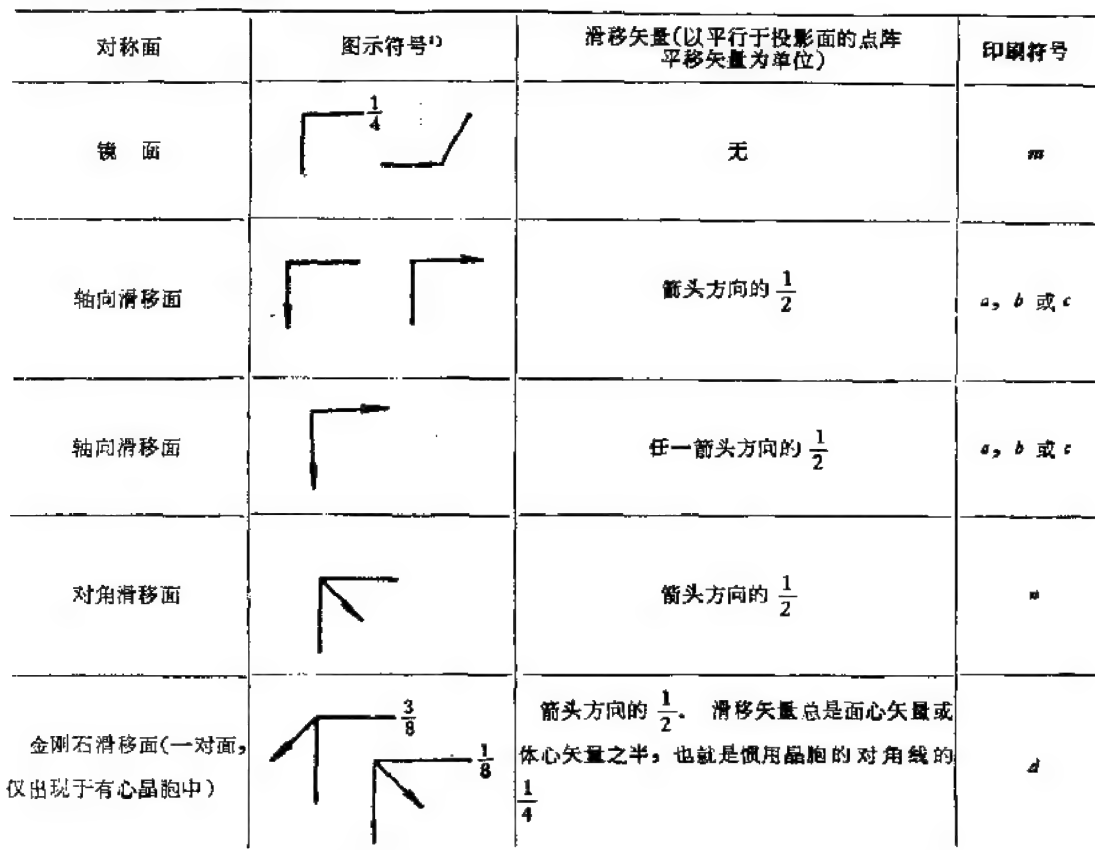 对称面 图示符号¹⁾ 滑移矢量(以平行于投影面的点阵平移矢量为单位) 印刷符号
镜 面 1/4 无 m
轴向滑移面 箭头方向的 1/2 a, b 或 c
轴向滑移面 任一箭头方向的 1/2 a, b 或 c
对角滑移面 箭头方向的 1/2 n
金刚石滑移面(一对面,
仅出现于有心晶胞中)
3/8
1/8
箭头方向的 1/2. 滑移矢量总是面心矢量或
体心矢量之半, 也就是惯用晶胞的对角线的
1/4
d